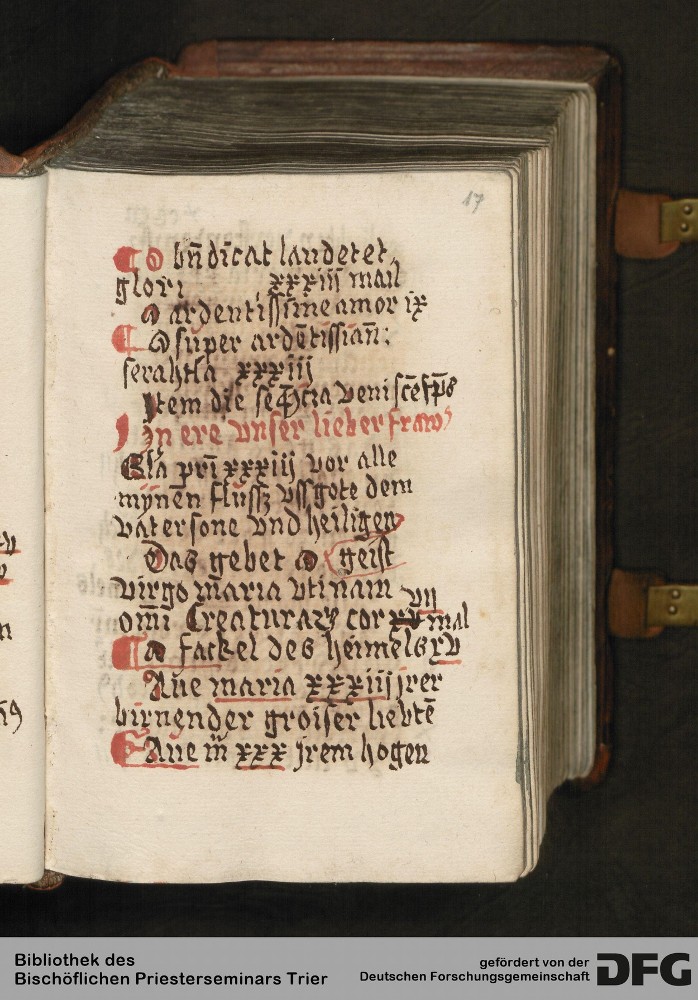 17
O bn̄dicat laudetet
glori xxxiii mail
O ardentissime amor ix
O super ardētissian̄:
seraphia xxxiii
Item die seq̄cia veni scē sp̄s
In ere vnser lieber fraw
Gl̄a pr̄i xxxiii vor alle
mynen flussz vssgote dem
vater sone vnd heiligen
Das gebet O geist
virgo m̄aria vtinam
om̄i Creaturarꝝ cor vii mal
O fackel des heimels xv
Aue maria xxxiii jrer
birnender groiser liebtē
Aue m̄ xxx jrem hogen
Bibliothek des
Bischöflichen Priesterseminars Trier
gefördert von der
Deutschen Forschungsgemeinschaft
DFG